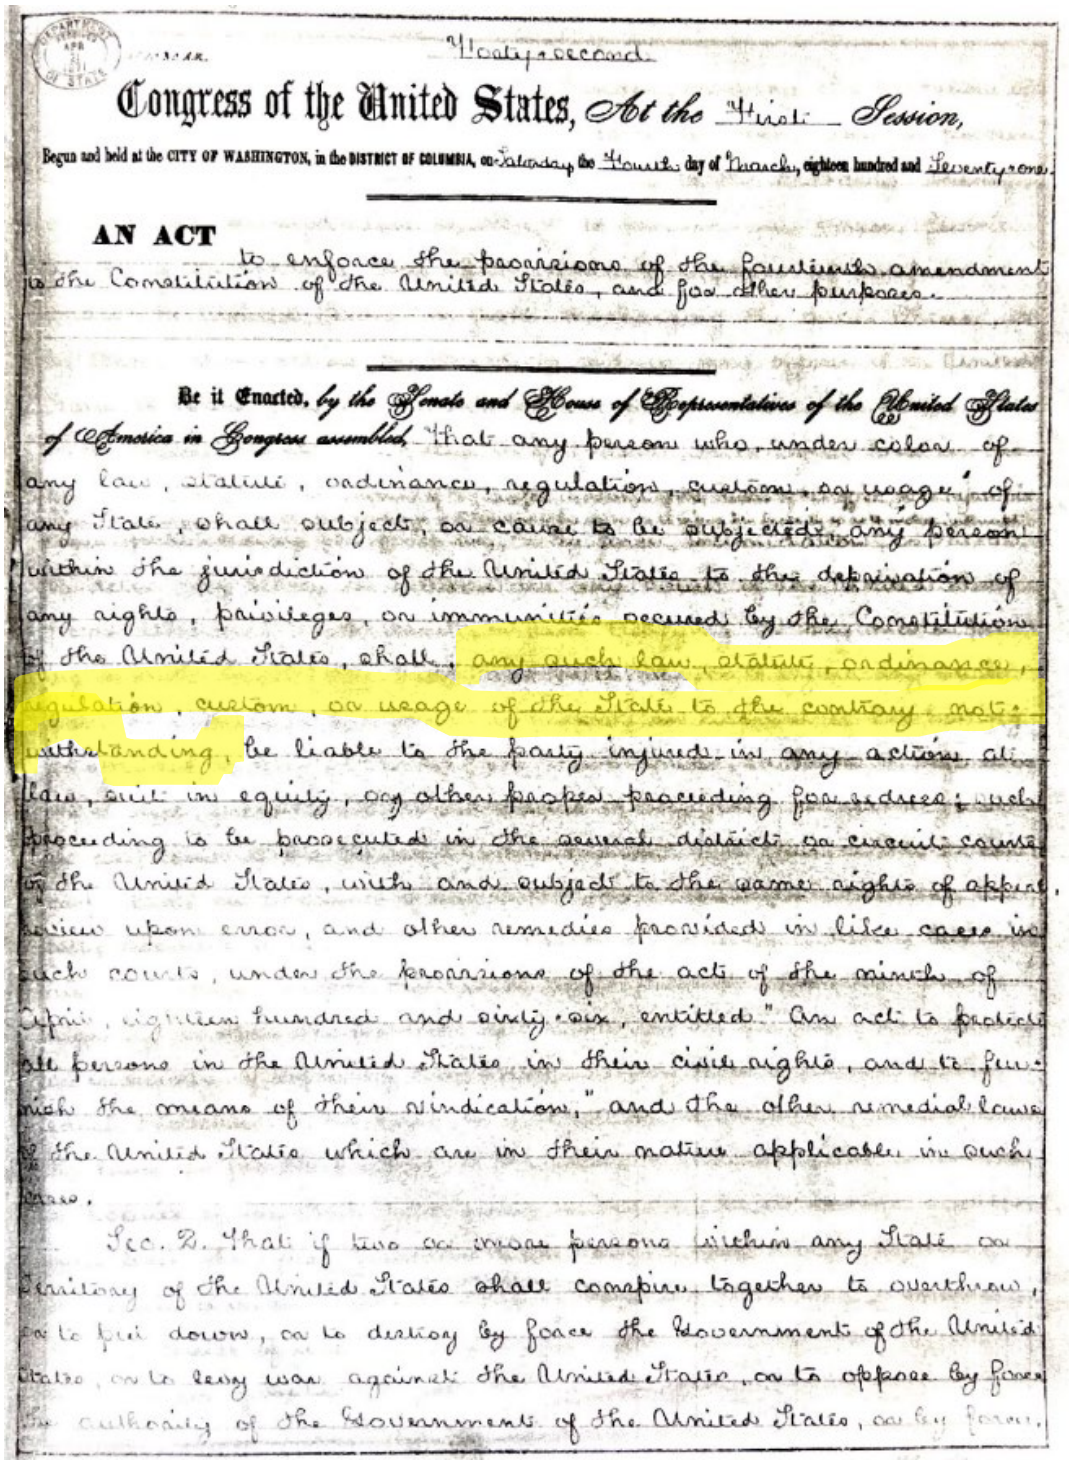 DEPARTMENT
APR
OF STATE
Forty-second
Congress of the United States, At the First Session,
Begun and held at the CITY OF WASHINGTON, in the DISTRICT OF COLUMBIA, on Saturday the Fourth day of March, eighteen hundred and Seventy-one.
AN ACT
to enforce the provisions of the fourteenth amendment
to the Constitution of the United States, and for other purposes.
Be it Enacted, by the Senate and House of Representatives of the United States
of America in Congress assembled, That any person who, under color of
any law, statute, ordinance, regulation, custom, or usage of
any State, shall subject, or cause to be subjected, any person
within the jurisdiction of the United States to the deprivation of
any rights, privileges, or immunities secured by the Constitution
of the United States, shall, any such law, statute, ordinance,
regulation, custom, or usage of the State to the contrary not-
withstanding, be liable to the party injured in any action at
law, suit in equity, or other proper proceeding for redress; such
proceeding to be prosecuted in the several district or circuit courts
of the United States, with and subject to the same rights of appeal,
review upon error, and other remedies provided in like cases in
such courts, under the provisions of the act of the ninth of
April, eighteen hundred and sixty-six, entitled "An act to protect
all persons in the United States in their civil rights, and to fur-
nish the means of their vindication," and the other remedial laws
of the United States which are in their nature applicable in such
cases.
Sec. 2. That if two or more persons within any State or
Territory of the United States shall conspire together to overthrow,
or to put down, or to destroy by force the Government of the United
States, or to levy war against the United States, or to oppose by force
the authority of the Government of the United States, or by force,